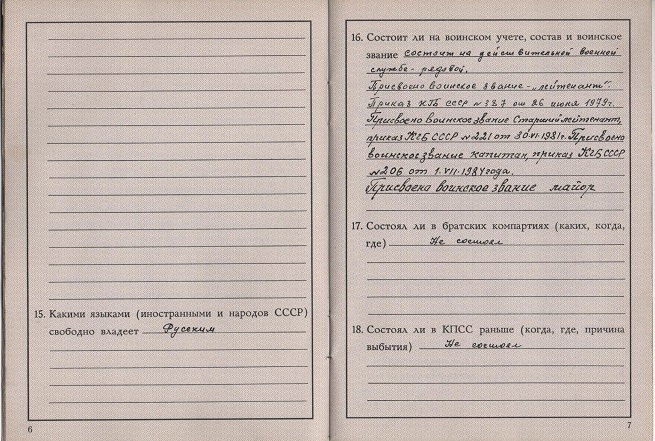 15. Какими языками (иностранными и народов СССР)
свободно владеет Русским
6
16. Состоит ли на воинском учете, состав и воинское
звание состоит на действительной военной
службе - рядовой.
Присвоено воинское звание - „лейтенант".
Приказ КГБ СССР № 387 от 26 июня 1979г.
Присвоено воинское звание Старший лейтенант,
приказ КГБ СССР № 221 от 30.VI-1981г. Присвоено
воинское звание капитан, приказ КГБ СССР
№ 206 от 1.VII-1984 года.
Присвоено воинское звание майор
17. Состоял ли в братских компартиях (каких, когда,
где) Не состоял
18. Состоял ли в КПСС раньше (когда, где, причина
выбытия) Не состоял
7